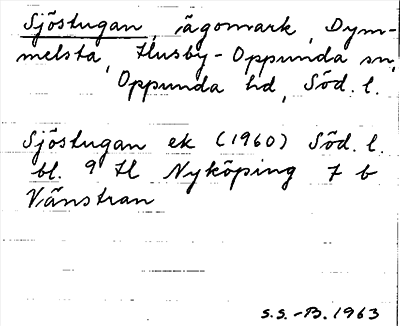 Sjöstugan, ägomark, Dym-
melsta, Husby-Oppunda sn,
Oppunda hd, Söd. l.
Sjöstugan ek (1960) Söd. l.
bl. 9 H Nyköping 7 b
Vänstran
S.S.-B. 1963